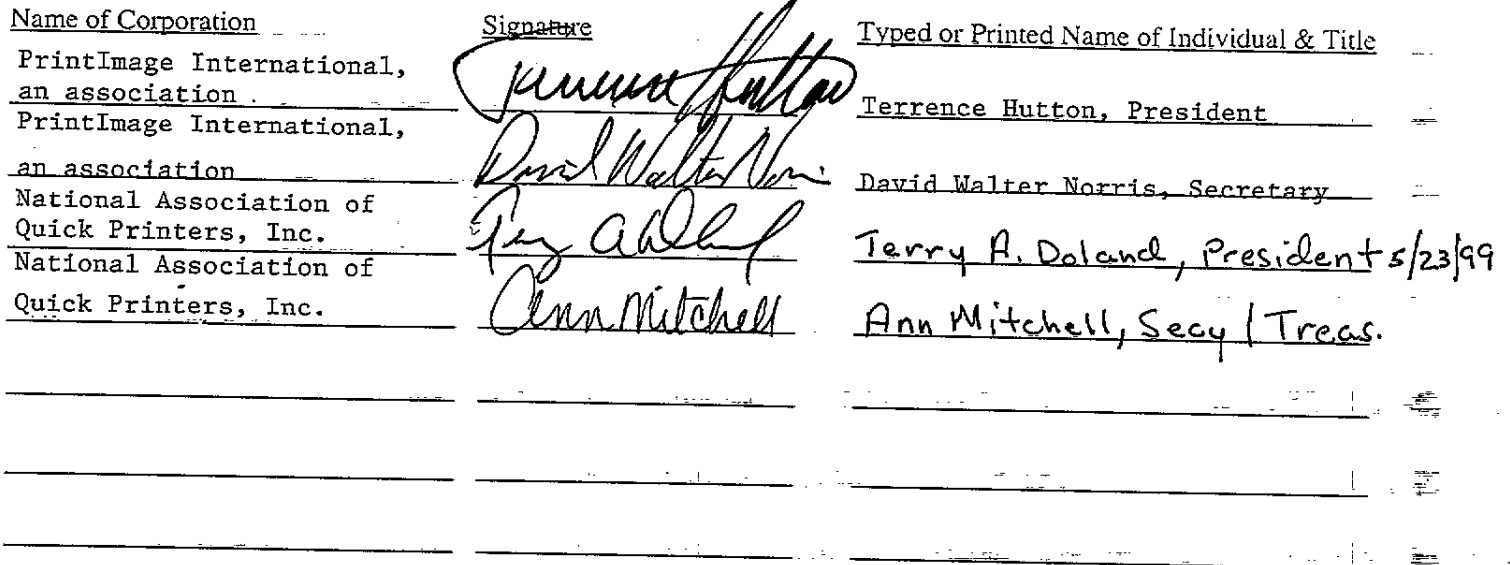 Name of Corporation Signature Typed or Printed Name of Individual & Title
PrintImage International,
an association Terrence Hutton Terrence Hutton, President
PrintImage International,
an association David Walter Norris David Walter Norris, Secretary
National Association of
Quick Printers, Inc. Terry A Doland Terry A. Doland, President 5/23/99
National Association of
Quick Printers, Inc. Ann Mitchell Ann Mitchell, Secy / Treas.